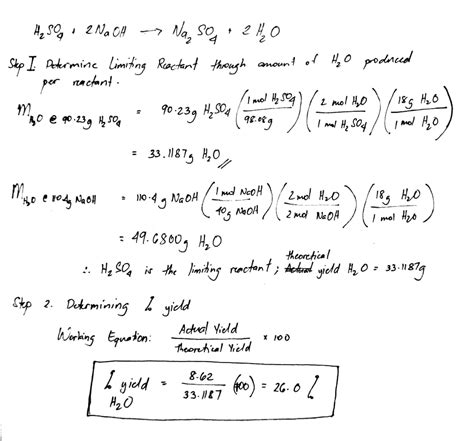 H₂SO₄ + 2 NaOH → Na₂SO₄ + 2 H₂O
Step I. Determine Limiting Reactant through amount of H₂O produced
per reactant.
m H₂O @ 90.23g H₂SO₄ = 90.23g H₂SO₄ (1 mol H₂SO₄ / 98.08g) (2 mol H₂O / 1 mol H₂SO₄) (18g H₂O / 1 mol H₂O)
= 33.1187g H₂O //
m H₂O @ 110.4g NaOH = 110.4g NaOH (1 mol NaOH / 40g NaOH) (2 mol H₂O / 2 mol NaOH) (18g H₂O / 1 mol H₂O)
= 49.6800g H₂O
theoretical
∴ H₂SO₄ is the limiting reactant; yield H₂O = 33.1187g
Step 2. Determining % yield
Working Equation: Actual Yield / Theoretical Yield × 100
% yield H₂O = 8.62 / 33.1187 (100) = 26.0 %